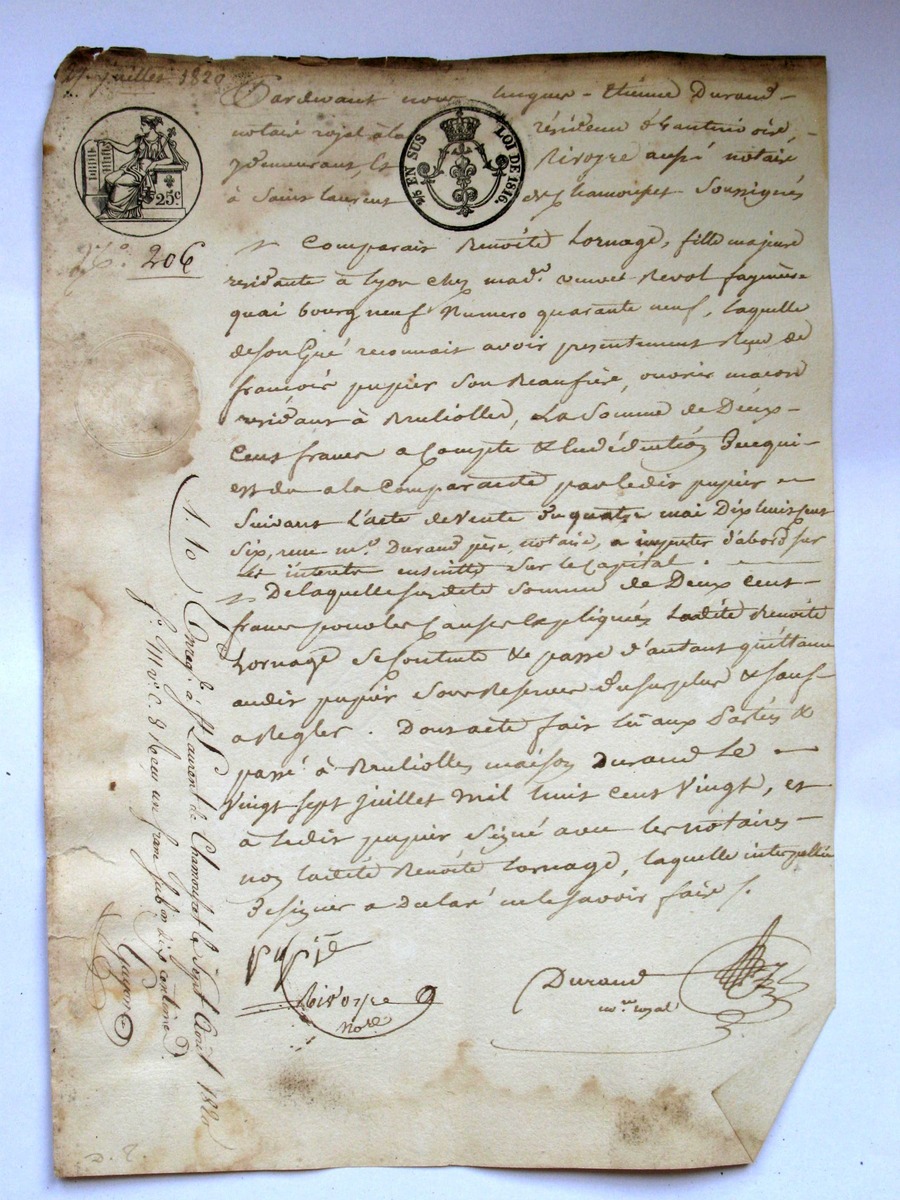 27 juillet 1820
Pardevant nous hugues-Etienne Durand
notaire royal à la résidence
y demeurant, et Rivoyre aussi notaire
à Saint Laurent de Chamousset Soussignés
25c
9/6 EN SUS LOI DE 1816
N.º 206
Comparait Benoîte Lornage, fille majeure
résidante à Lyon chez mad.e veuve Revol
quai bourgneuf Numero quarante neuf, laquelle
de son Gré reconnait avoir presentement Reçu de
francois pupier son Beaufrère, ouvrier macon
residant à Brulliolles, La Somme de Deux
Cens francs a Compte & En déduction De ce qui
est du a la Comparante par ledit pupier
Suivant L'acte de Vente Du quatre mai Dix huit cent
Six, reçu m.e Durand père, notaire, a imputer d'abord sur
les interets ensuitte sur le Capital.
De laquelle susdite Somme de Deux cens
francs pour les Causes Expliquées Ladite Benoite
Lornage Se Contente & passe d'autant quittance
audit pupier Sous Reserve Du surplus & sauf
a Regler. Dont acte fait lu aux Parties &
passé à Brulliolles maison Durand Le
Vingt sept juillet mil huit cent Vingt, et
à ledit pupier Signé avec les notaires
non ladite Benoite Lornage, laquelle interpellée
De signer a Declaré ne le savoir faire /.
Pupié
Rivoyre
no.re
Durand
no.re royal
N. 10 Enreg.é à S.t Laurent de Chamousset le Sept Août 1820
f.o 111 v.o c. 8 Recu un franc dix centimes
D. E.